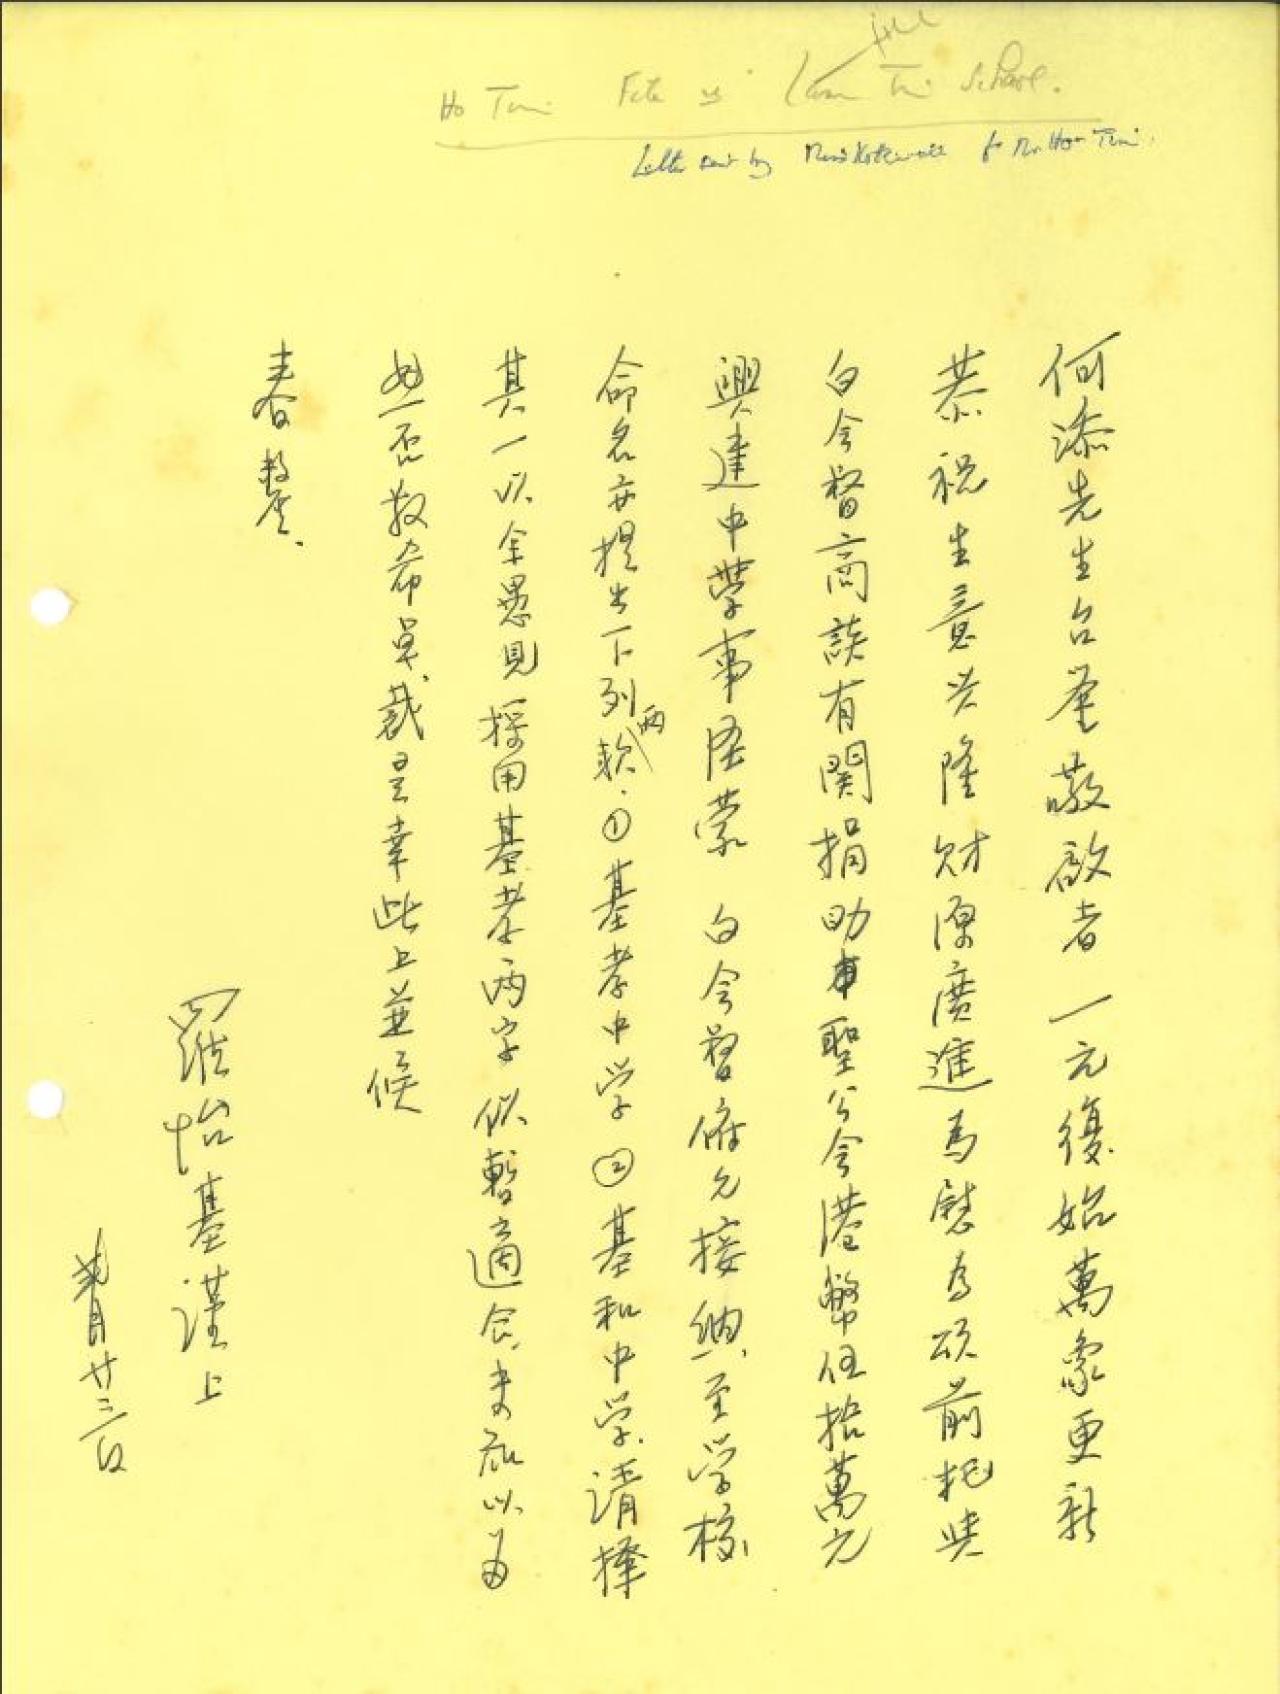 Ho Tim File is Lam Tin School.
Letter sent by Miss Kotewall to Mr. Ho Tim.
何添先生台鉴敬啟者一元復始萬象更新
恭祝生意兴隆財源廣進為慰為頌前托與
白會督商談有関捐助聖公会港幣伍拾萬元
興建中學事隆蒙 白會督俯允接納、至学校
命名亦提出下列兩款、①基孝中学②基和中学、請擇
其一以余愚見採用基孝兩字似暫適合、未知以為
然否敬希卓裁是幸此上並候
春釐、
羅怡基謹上
月廿三日